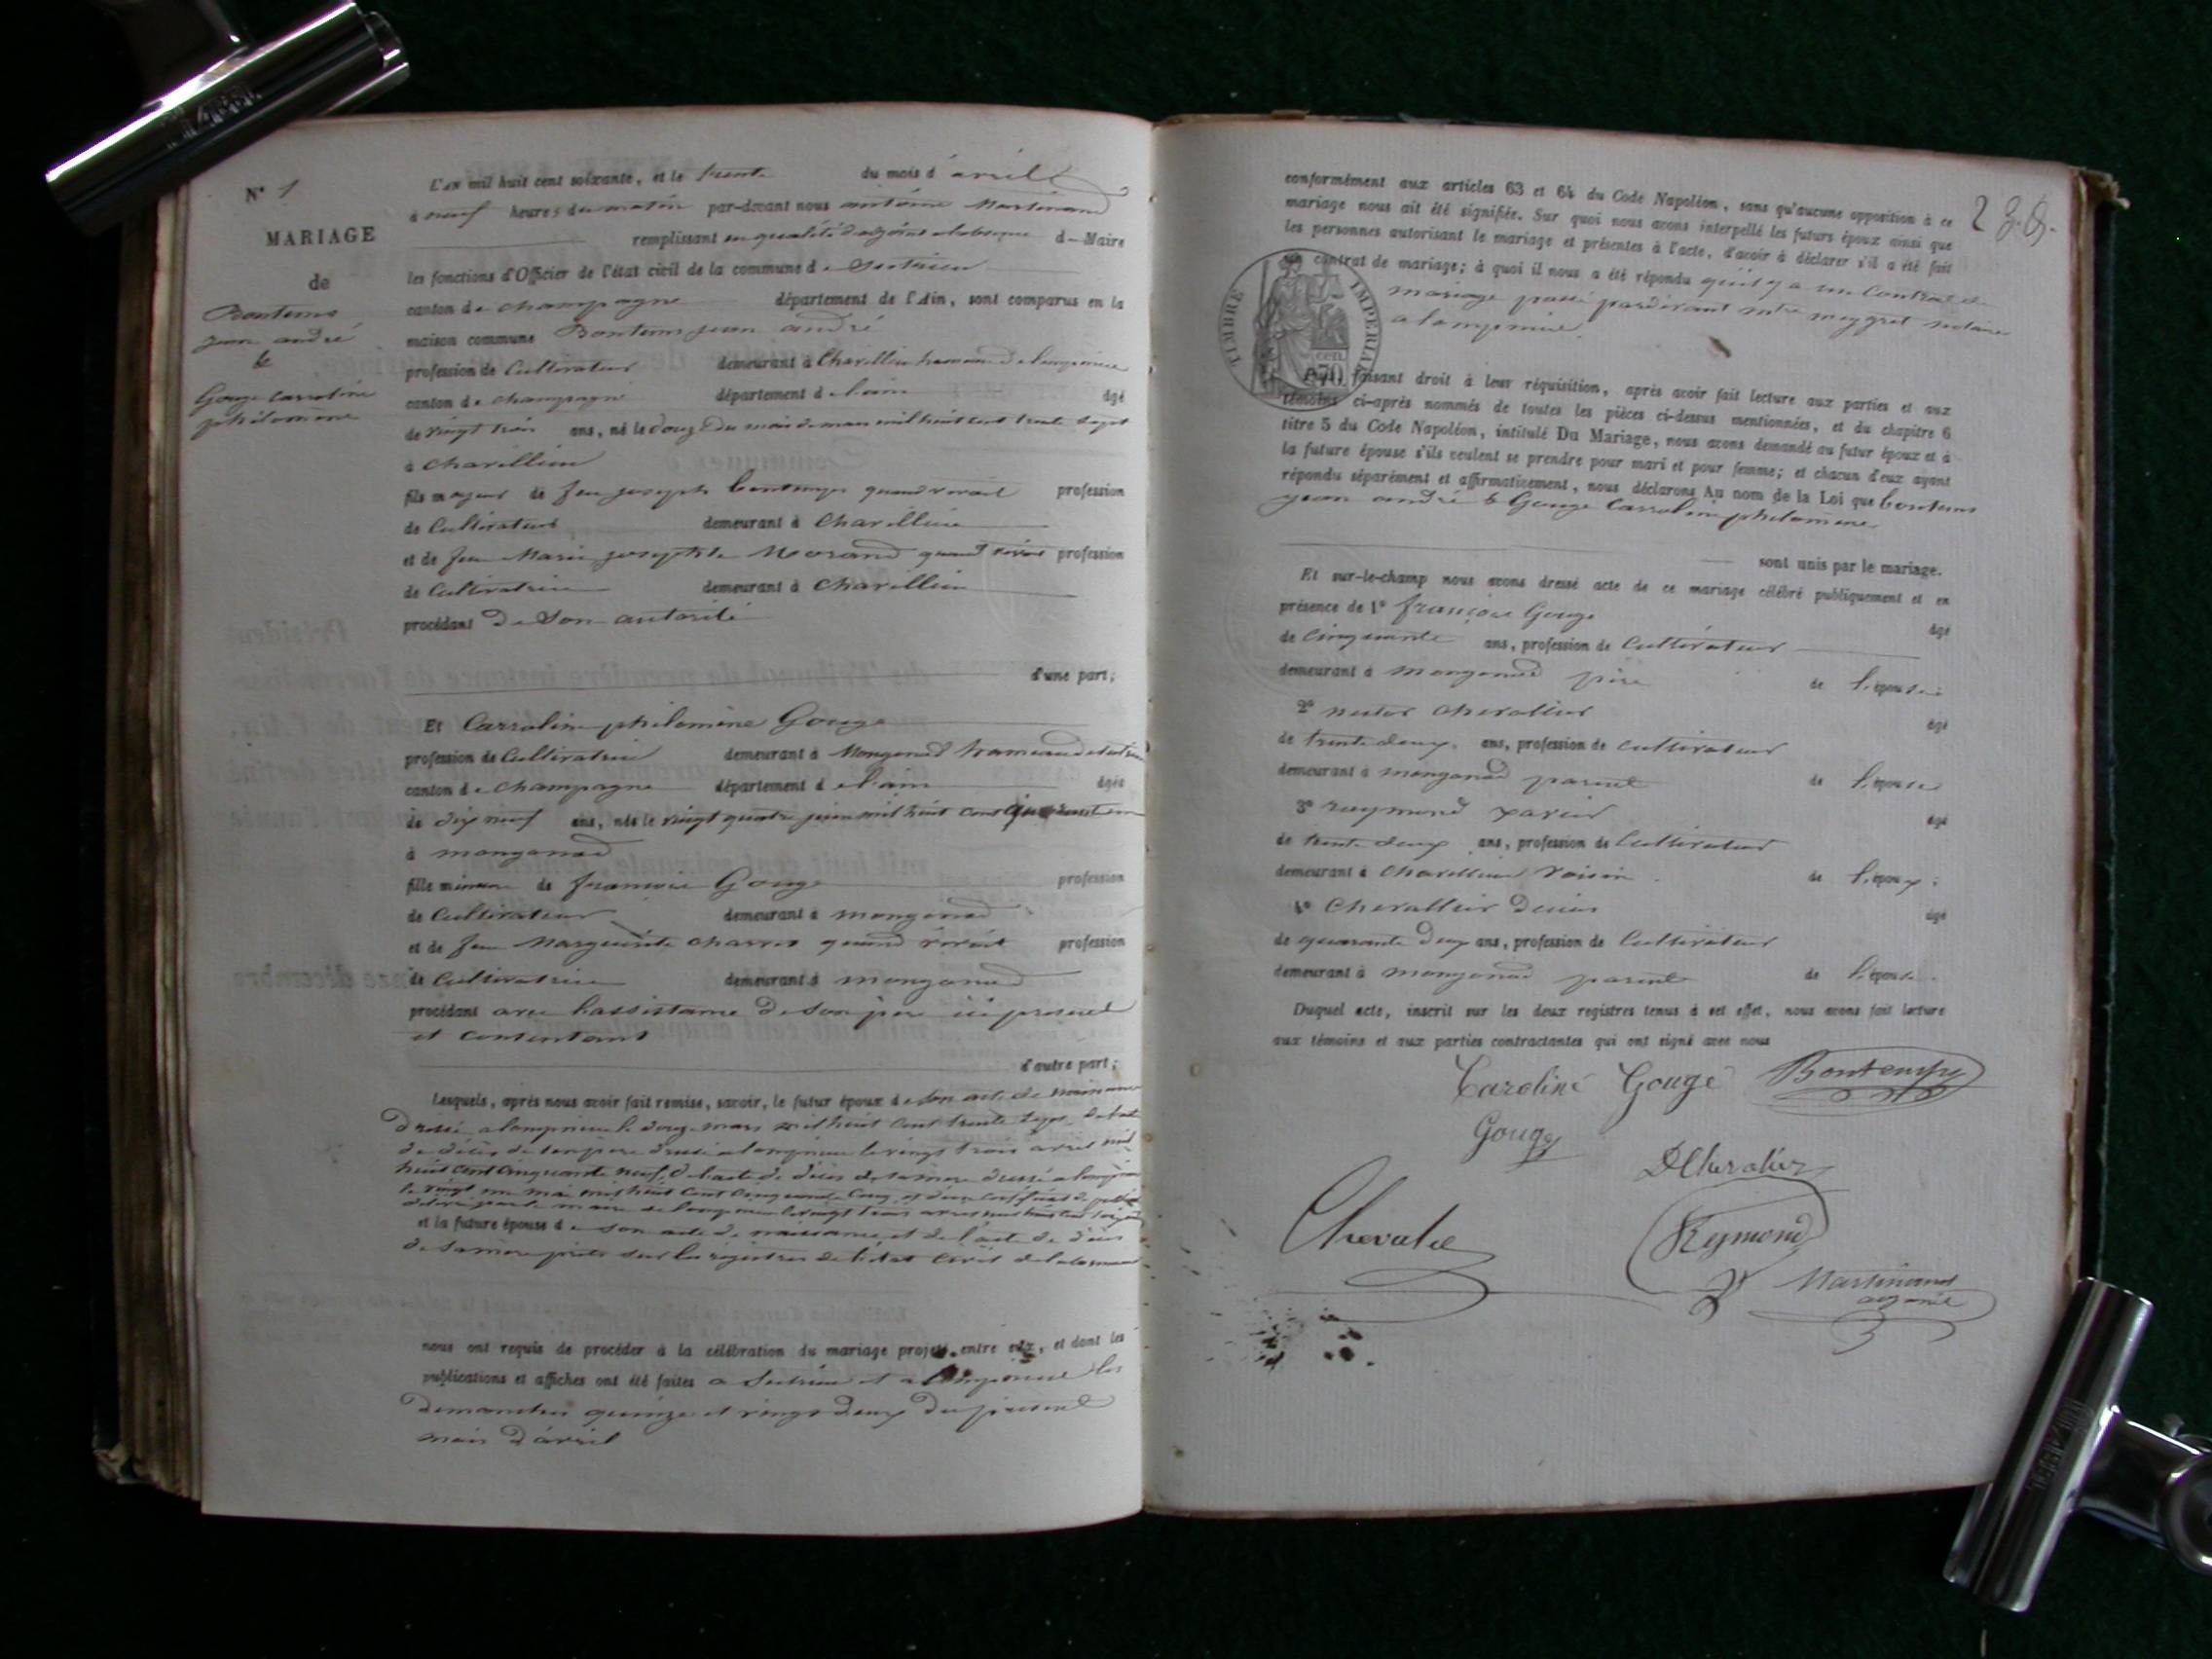 N° 1
MARIAGE
de
Bontems
jean andré
&
Gouge Carroline
philomène
L'an mil huit cent soixante, et le trente du mois d'avril
à neuf heures du matin par-devant nous antoine Martinand
remplissant en qualité d'adjoint d Maire
les fonctions d'Officier de l'état civil de la commune de
canton de champagne département de l'Ain, sont comparus en la
maison commune Bontems jean andré
profession de Cultivateur demeurant à Charillin hameau de
canton de champagne département de l'ain âgé
de vingt trois ans, né le douze du mois de mars mil huit cent trente sept
à charillin
fils majeur de feu joseph bontemps quand vivait profession
de Cultivateur demeurant à Charillin
et de feu Marie josephte Morand quand vivait profession
de Cultivatrice demeurant à Charillin
procédant de son autorité
d'une part;
Et Carroline philomène Gouge
profession de Cultivatrice demeurant à Mongonod hameau de
canton de champagne département de l'ain âgée
de dix neuf ans, née le vingt quatre juin mil huit cent
à mongonod
fille mineure de francois Gouge profession
de Cultivateur demeurant à mongonod
et de feu Marguerite charvet quand vivait profession
de Cultivatrice demeurant à mongonod
procédant avec l'assistance de son père ici présent
et consentant
d'autre part;
Lesquels, après nous avoir fait remise, savoir, le futur époux de son acte de naissance
dressé a lompnieu le douze mars mil huit cent trente sept de l'acte
de décès de son père dressé a lompnieu le vingt trois avril mil
huit cent cinquante neuf, de l'acte de décès de sa mère dressé a
le vingt mai mil huit cent cinquante cinq et d'un certificat de
délivré par le maire de lompnieu le vingt trois
et la future épouse de son acte de naissance et de l'acte de décès
de sa mère sur les registres de l'état civil de la commune
nous ont requis de procéder à la célébration du mariage projeté entre eux, et dont les
publications et affiches ont été faites a et a lompnieu les
dimanches quinze et vingt deux du présent
mois d'avril
conformément aux articles 63 et 64 du Code Napoléon, sans qu'aucune opposition à ce
mariage nous ait été signifiée. Sur quoi nous avons interpellé les futurs époux ainsi que
les personnes autorisant le mariage et présentes à l'acte, d'avoir à déclarer s'il a été fait
un contrat de mariage; à quoi il nous a été répondu qu'il y a un Contrat de
mariage passé pardevant mtre meygret notaire
a lompnieu
TIMBRE IMPERIAL
70 cen.
Et faisant droit à leur réquisition, après avoir fait lecture aux parties et aux
témoins ci-après nommés de toutes les pièces ci-dessus mentionnées, et du chapitre 6
titre 5 du Code Napoléon, intitulé Du Mariage, nous avons demandé au futur époux et à
la future épouse s'ils veulent se prendre pour mari et pour femme; et chacun d'eux ayant
répondu séparément et affirmativement, nous déclarons Au nom de la Loi que bontems
jean andré & Gouge Carroline philomène
sont unis par le mariage.
Et sur-le-champ nous avons dressé acte de ce mariage célébré publiquement et en
présence de 1° françois Gouge âgé
de Cinquante ans, profession de Cultivateur
demeurant à mongonod père de l'épouse;
2° nestor chevalier âgé
de trente deux ans, profession de cultivateur
demeurant à mongonod parent de l'épouse
3° raymond xavier âgé
de trente deux ans, profession de Cultivateur
demeurant à Charillin voisin de l'époux;
4° Chevallier Denis âgé
de quarante deux ans, profession de Cultivateur
demeurant à mongonod parent de l'épouse.
Duquel acte, inscrit sur les deux registres tenus à cet effet, nous avons fait lecture
aux témoins et aux parties contractantes qui ont signé avec nous
Caroline Gouge Bontemps
Gouge
D Chevalier
Chevalié
Reymond
Martinand